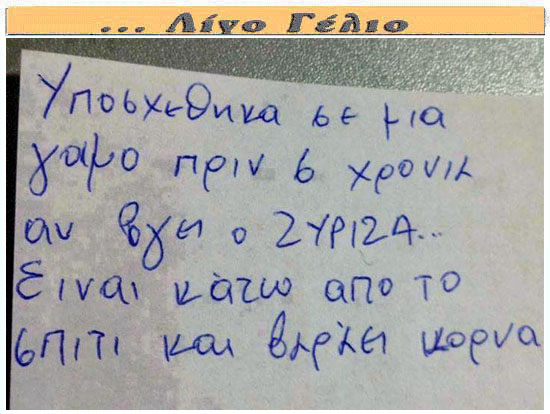 ... Λίγο Γέλιο
Υποσχεθηκα σε μια
γαμο πριν 6 χρονια
αν βγει ο ΣΥΡΙΖΑ...
Ειναι κατω απο το
σπιτι και βαραει κορνα